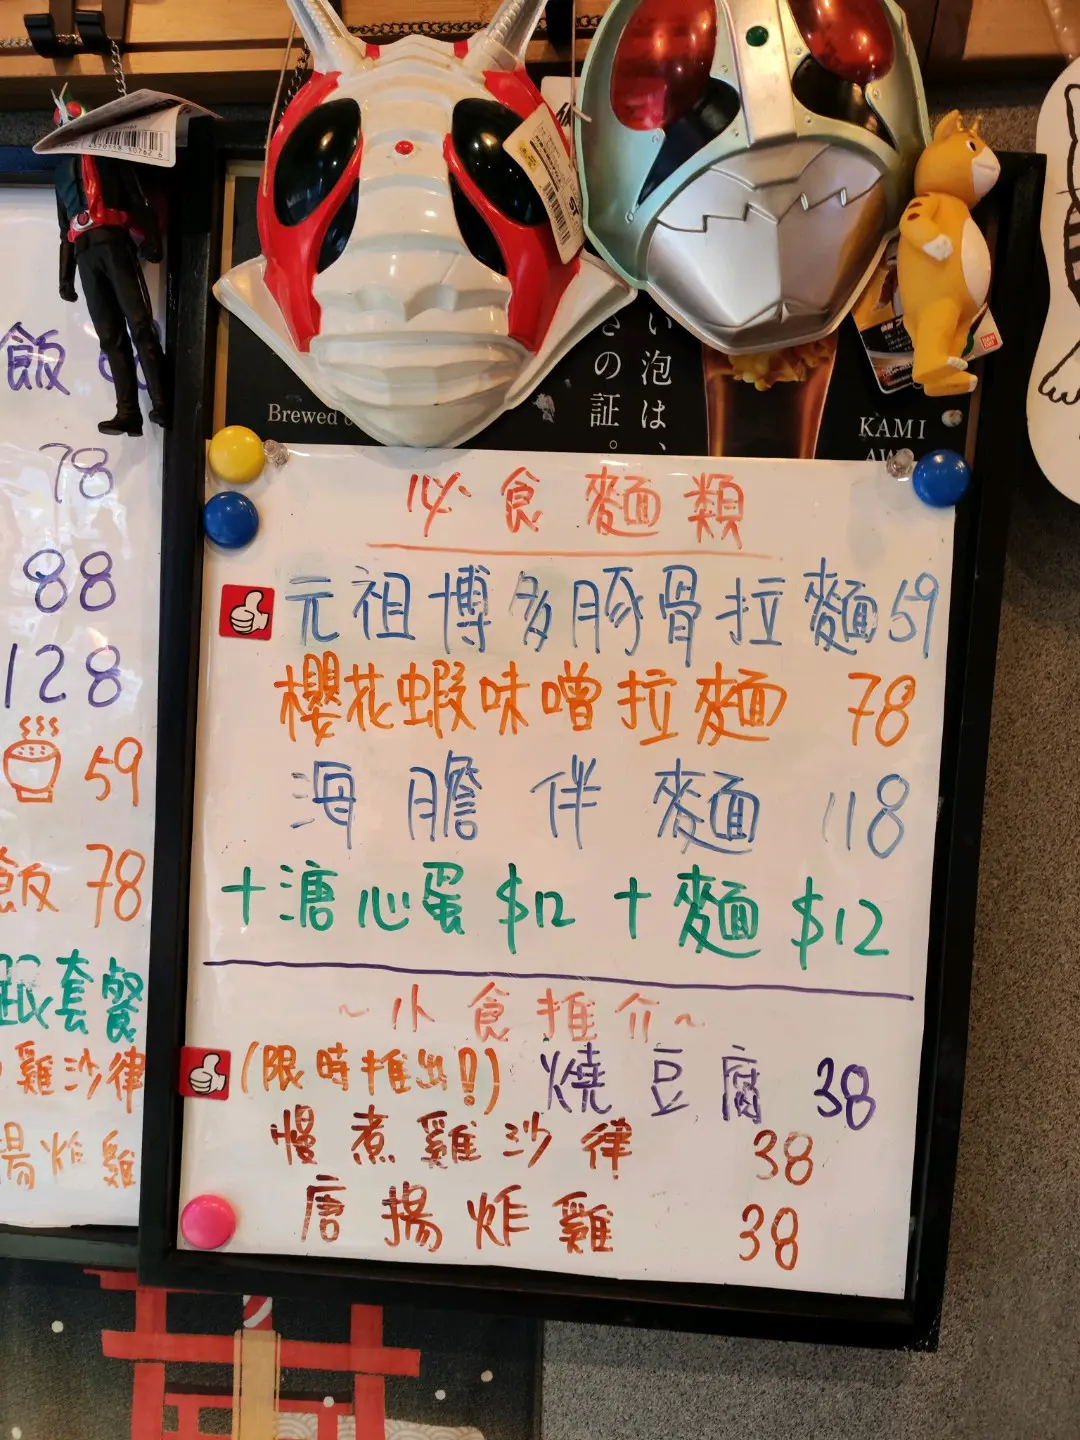 飯
78
88
128
59
飯 78
套餐
雞沙律
揚炸雞
4570118 150762 6
Brewed
泡は、
さの証。
KAMI
BANDAI
必食麵類
元祖博多豚骨拉麵 59
櫻花蝦味噌拉麵 78
海膽伴麵 118
+溏心蛋 $12 + 麵 $12
~小食推介~
(限時推出!) 燒豆腐 38
慢煮雞沙律 38
唐揚炸雞 38